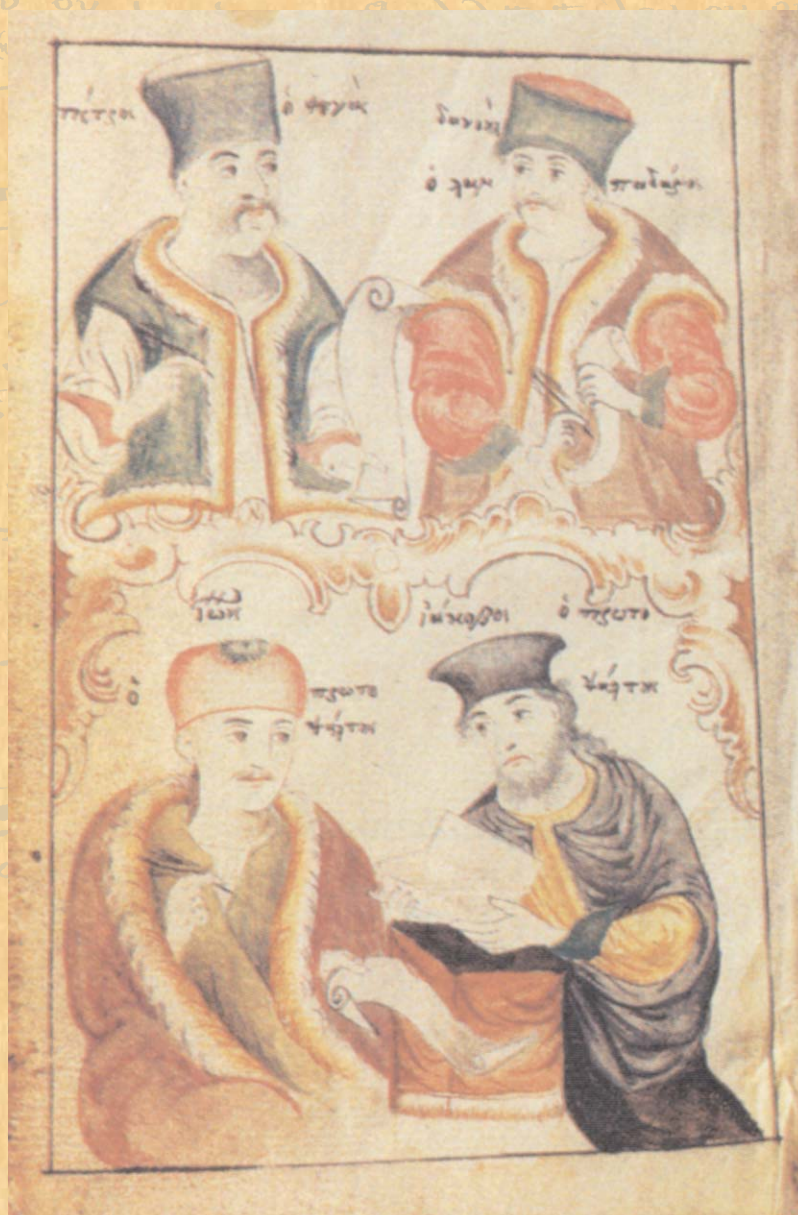 πέτρος ὁ φυγὰς
δανιὴλ
ὁ λαμ παδάριος
ἰω
ὁ πρωτο
ψάλτης
ἰάκωβος ὁ πρωτο
ψάλτης